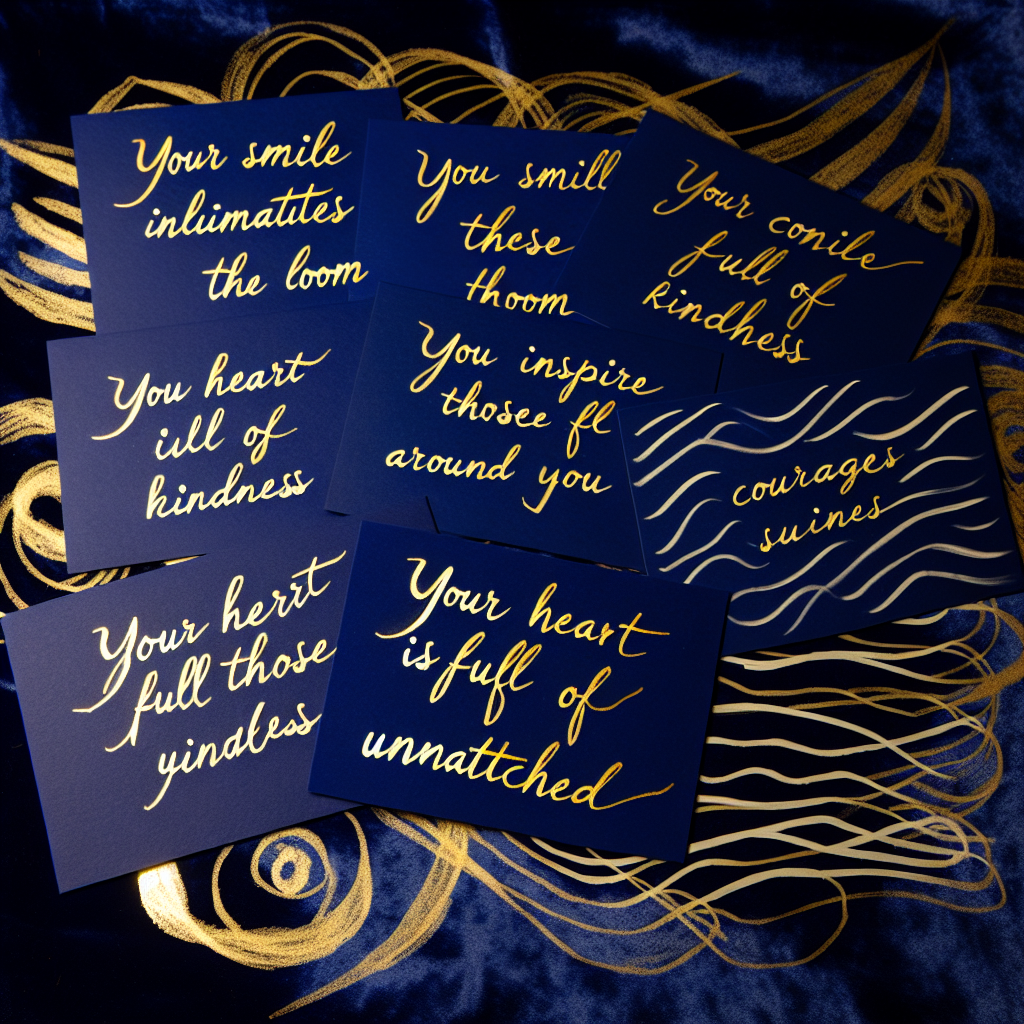 Your smile
inluimatites
the loom
You smill
these
thoom
Your conile
full of
kindhess
You heart
iull of
kindness
You inspire
thosee fl
around you
courages
suines
Your herrt
full those
yindless
Your heart
is fufl of
unnattched